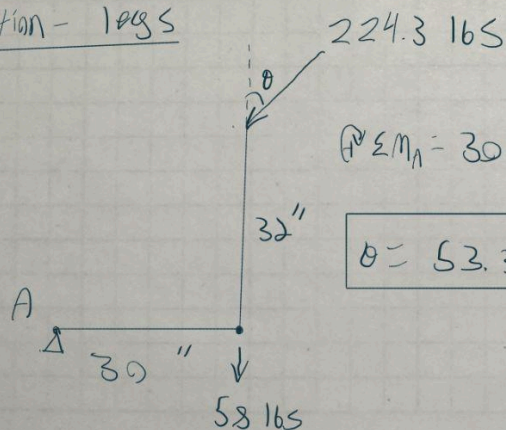 tion - legs
224.3 lbs
θ
ΣM_A = 30
32"
θ = 53.3
A
30"
58 lbs